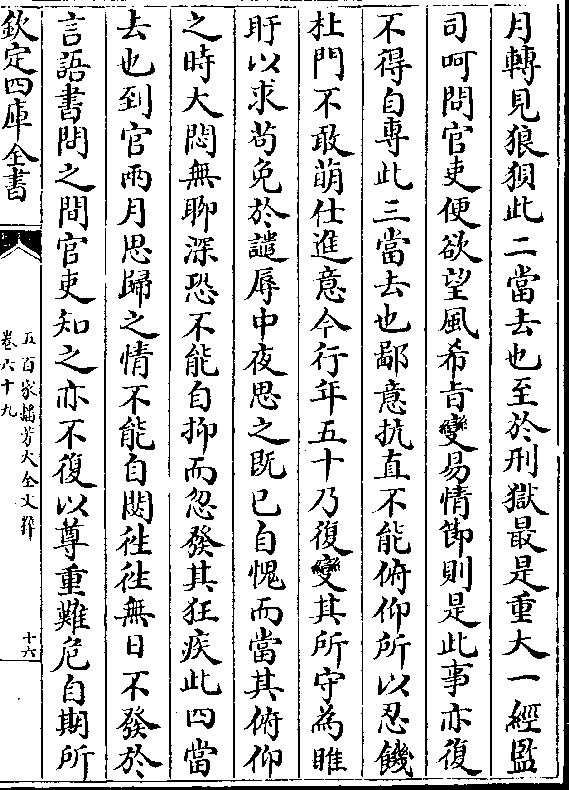 月轉見狼狽此二當去也至於刑獄最是重大一經監
司呵問官吏便欲望風希旨變易情節則是此事亦復
不得自專此三當去也鄙意抗直不能俯仰所以忍饑
杜門不敢萌仕進意今行年五十乃復變其所守為睢
盱以求茍免於譴辱中夜思之既已自愧而當其俯仰
之時大悶無聊深恐不能自抑而忽發其狂疾此四當
去也到官兩月思歸之情不能自閼徃徃無日不發於
言語書問之間官吏知之亦不復以尊重難危自期所
欽定四庫全書
五百家播芳大全文粹
卷六十九
十六